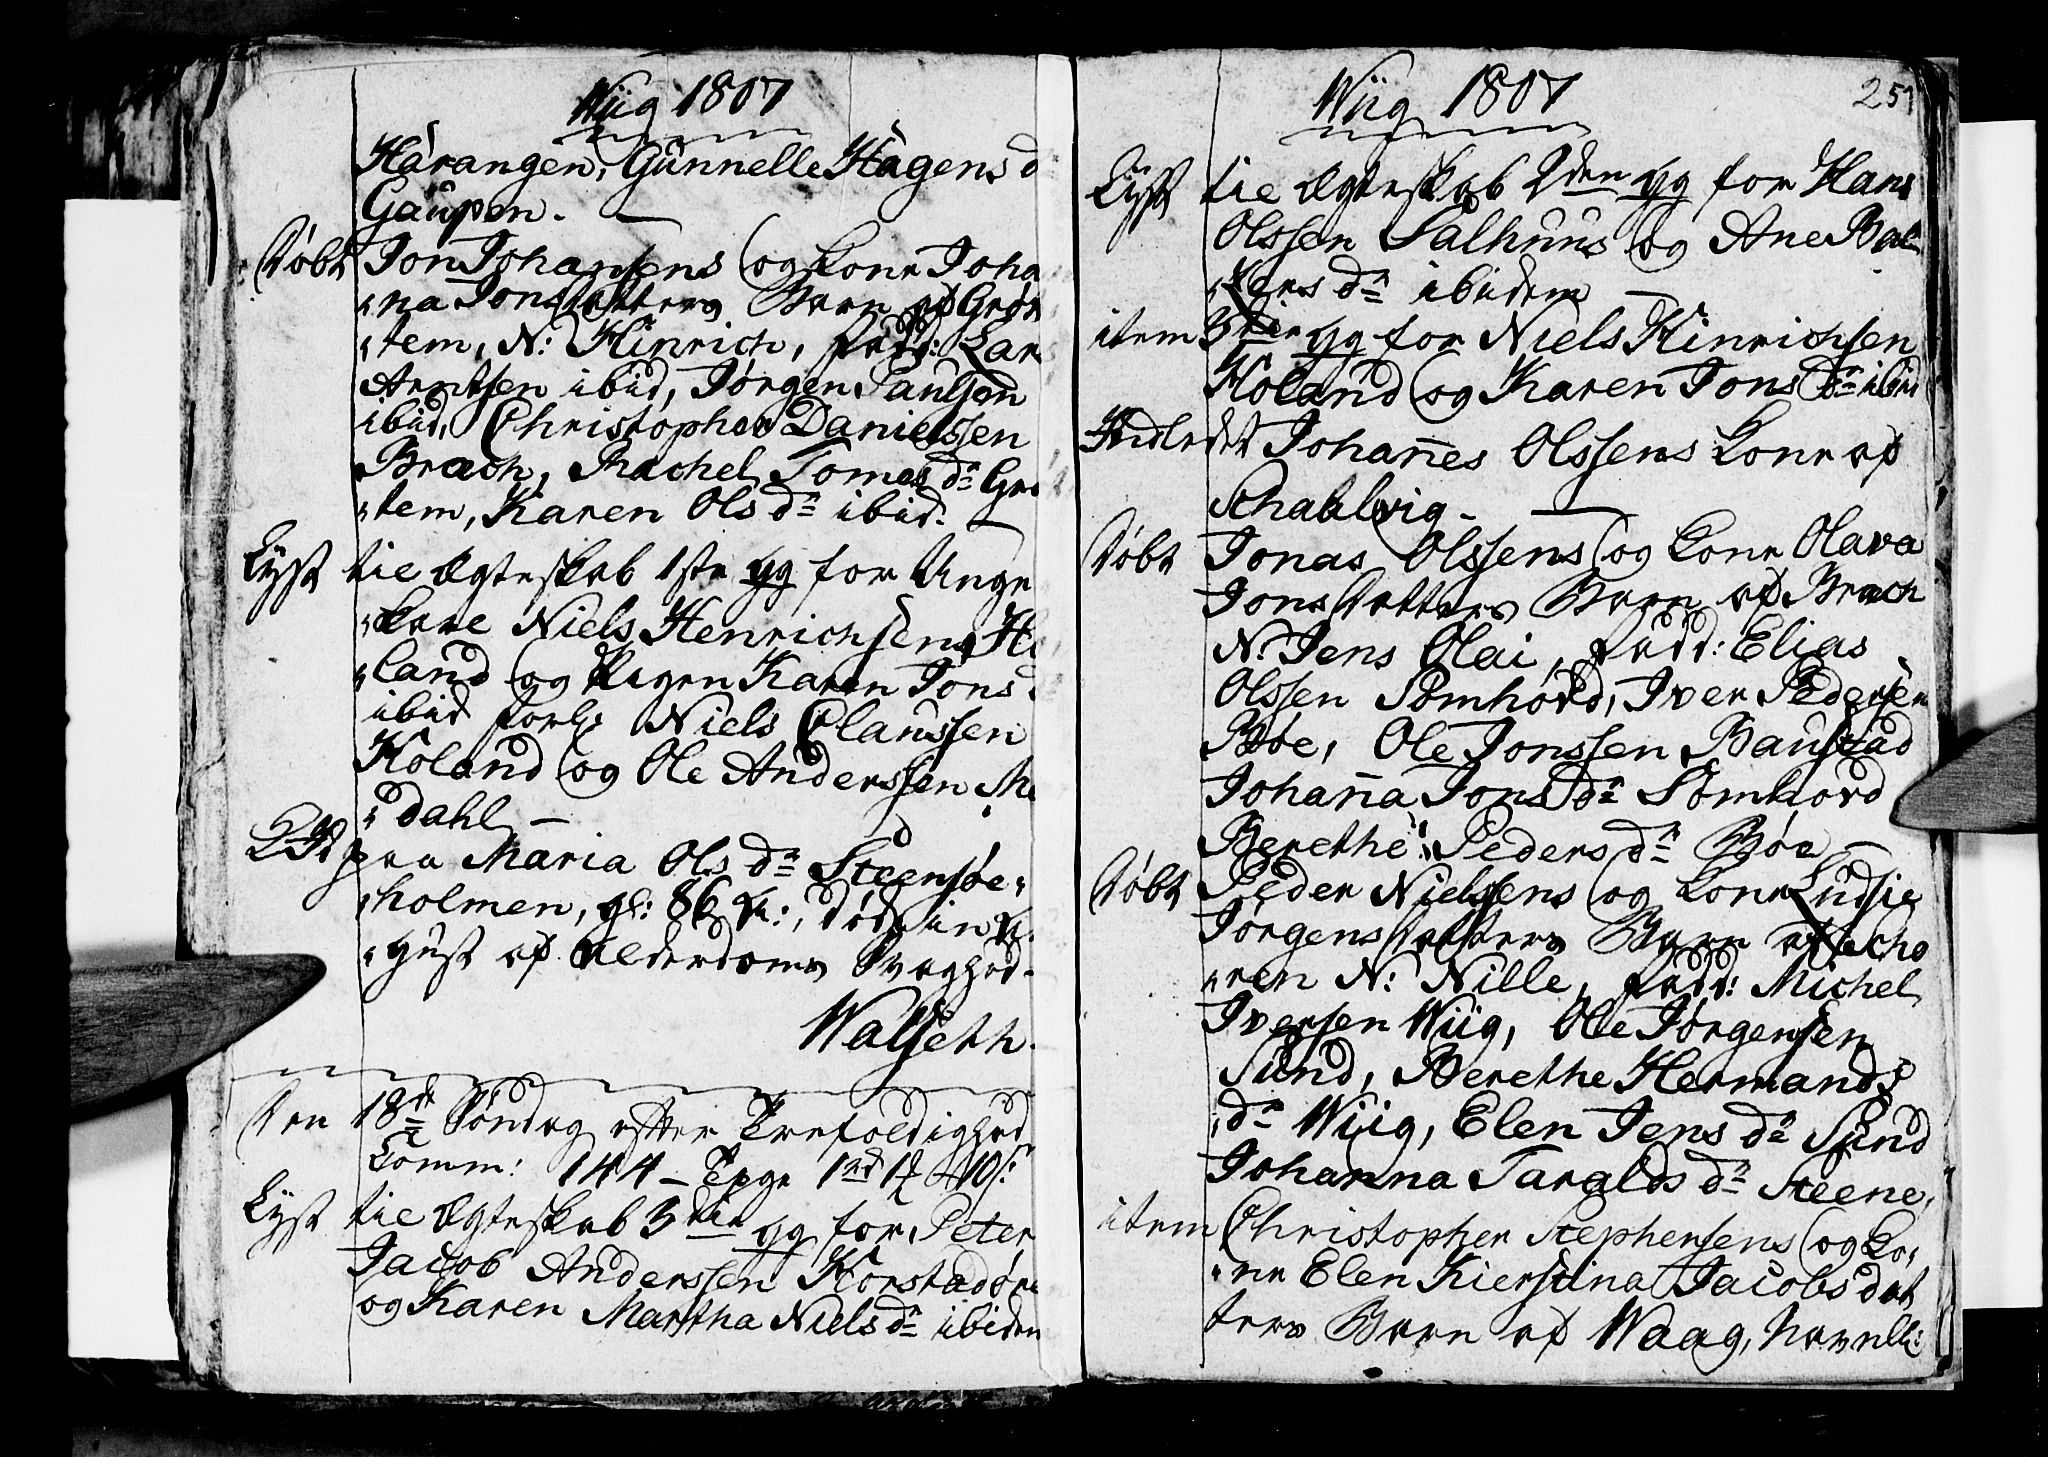 Wüg 1807
Hårangen, Gunnelle Hagens d
Gaupen. —
Døbt Jon Johansens og Kone Joha
na Jonsdatters Barn af Grøn
tem, N: Hinrich, fadd: Lars
Arntsen ibid, Jørgen Paulsen
ibid, Christopher Danielssen
Bræch, Rachel Tomas dr Grø
tem, Karen Ols dr ibid. —
Lyst til Ægteskab 1ste gg for Unge
Karl Niels Henrichsen Ho
land og Pigen Karen Jons
ibid forl: Niels Claussen
Holand og Ole Anderssen Me
dahl —
J P paa Maria Ols dr Steensøe
holmen, gl: 86 Aar, død in
gust af Alderdoms Svaghed.
Walseth.
Den 18de Søndag efter Trefoldighed
Comm: 144 — 1rd 10s:
Lyst til Ægteskab 3die gg for Peter
Jacob Anderssen Horstadøre
og Karen Martha Niels dr ibidem
Wüg 1807
251
Lyst til Ægteskab 2den gg for Hans
Olssen Salhuus og Ane Bal
tzers dr ibidem —
item 3die gg for Niels Hinrichsen
Holand og Karen Jons dr ibid
Indledet Johannes Olssens Kone af
Schaalvig. —
Døbt Jonas Olssens og Kone Olava
Jonsdatters Barn af Bræch
N: Jens Olai, fadd: Elias
Olssen Somhovd, Iver Pedersen
Bøe, Ole Jonssen Baustad
Johanna Jons dr Somhovd
Berethe Peders dr Bøe —
Døbt Peder Nielssens og Kone Ludsie
Jørgensdatters Barn af Scho
ren N: Nille, fadd: Michel
Iversen Wüg, Ole Jørgensen
Sund, Berethe Hermands
dr Wüg, Elen Jens dr Sund
Johanna Taralds dr Steene,
item Christopher Stephensens og Ko
ne Elen Kierstina Jacobs dat
ters Barn af Waag, Navnlh: